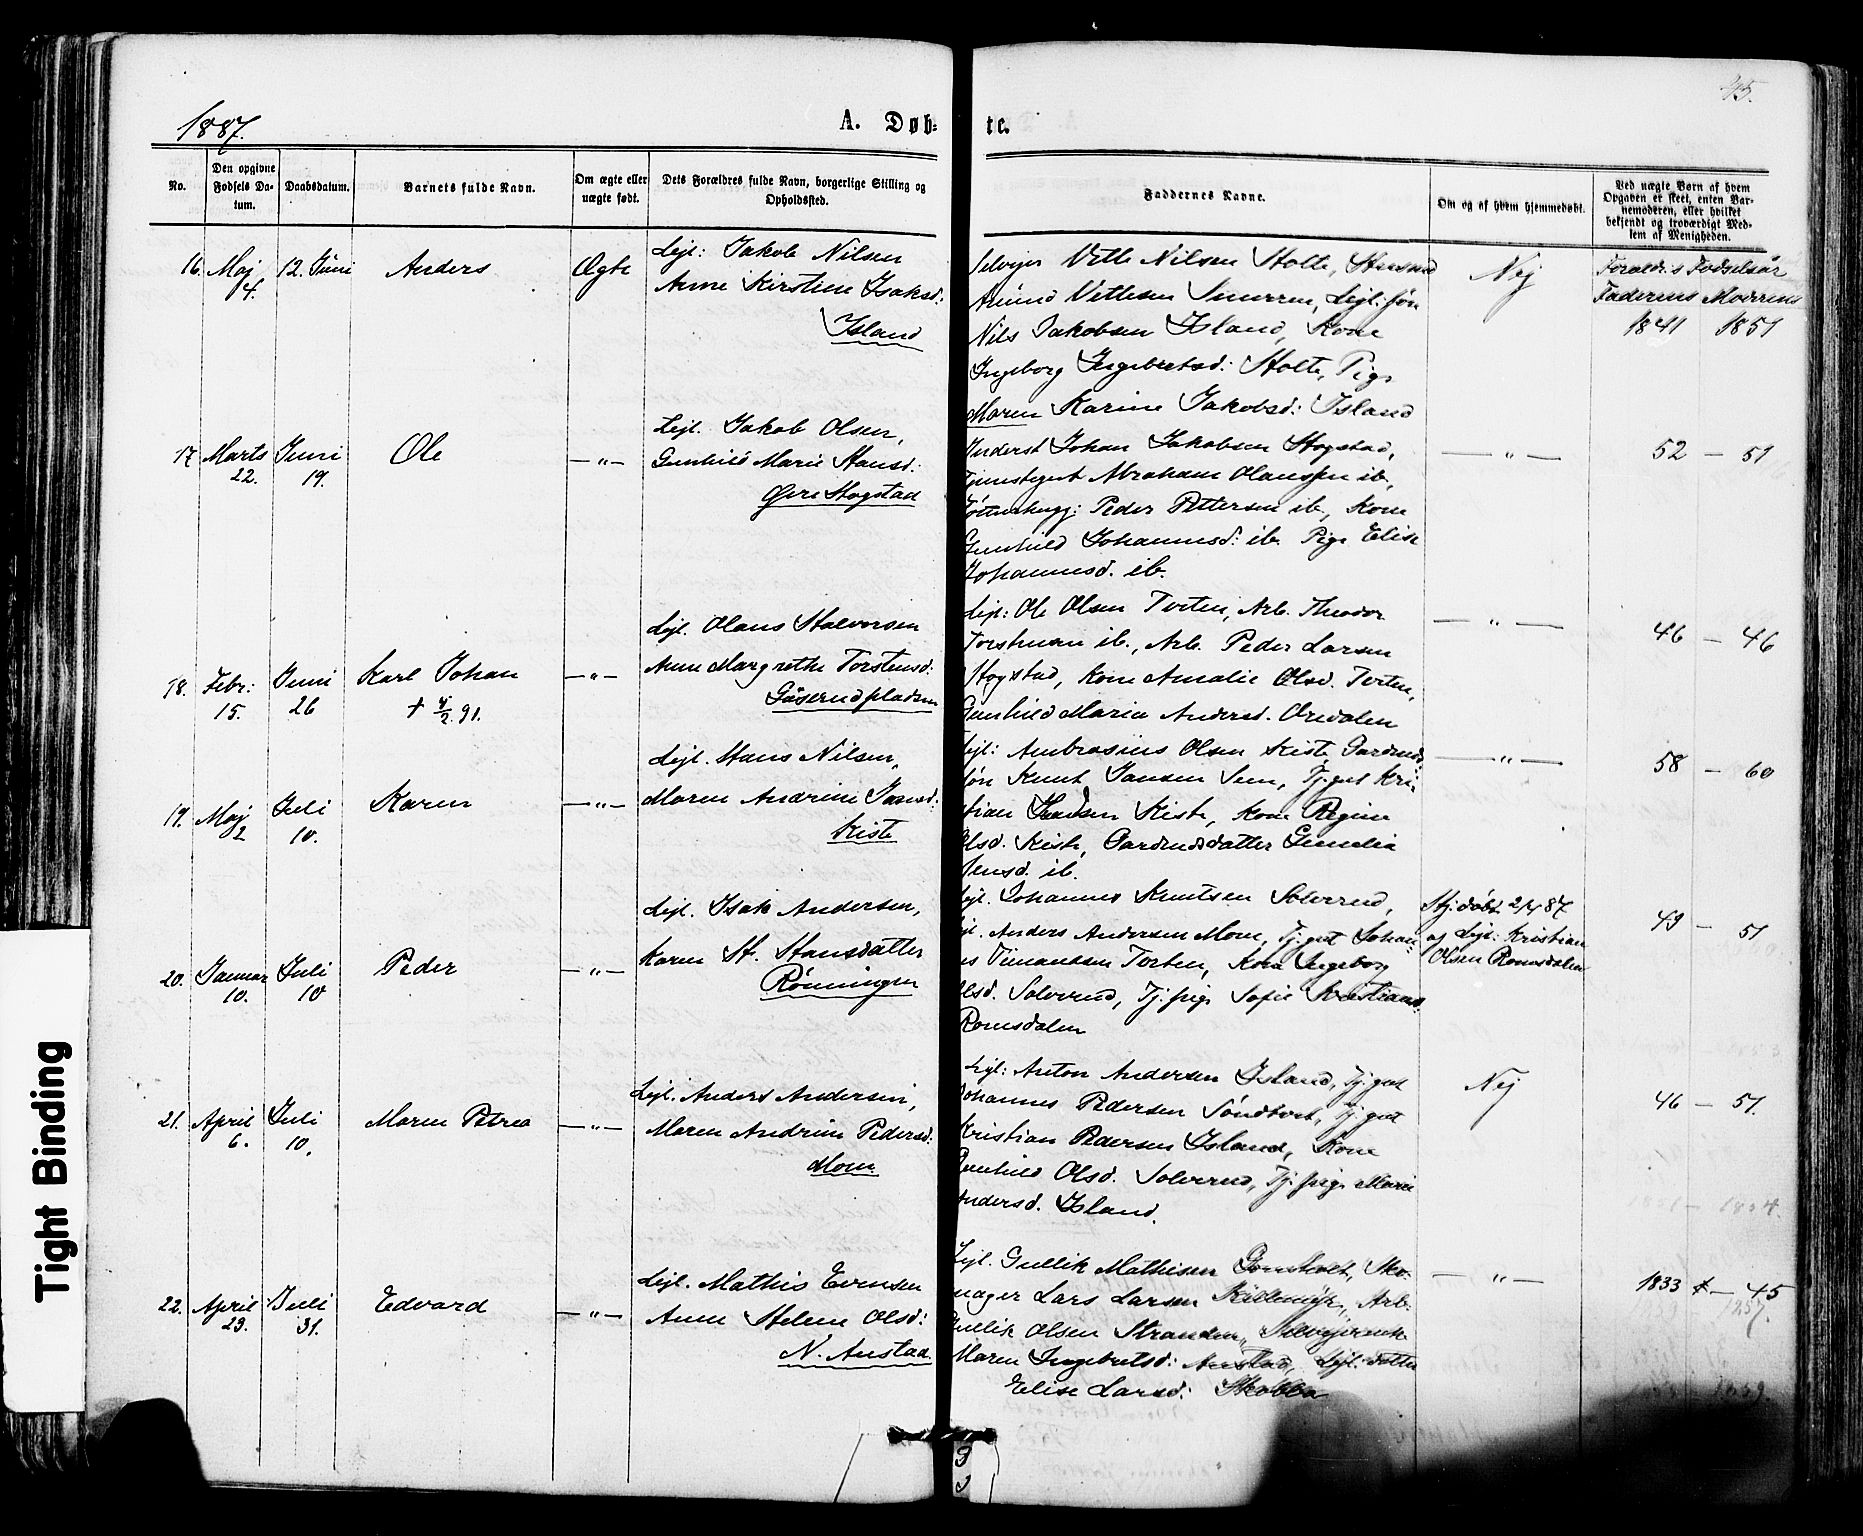 45.
1887.
A. Døb-
te.
No.
Den opgivne Fødsels Da-tum.
Daabsdatum.
Barnets fulde Navn.
Om ægte eller uægte født.
Dets Forældres fulde Navn, borgerlige Stilling og Opholdssted.
Faddernes Navne.
Om og af hvem hjemmedøbt.
Ved uægte Børn af hvem Opgaven er skeet, enten Bar-nemoderen, eller hvilket bekjendt og troværdigt Med-lem af Menigheden.
16. Maj 4. 12. Juni Anders Ægte
Lejl: Jakob Nilsen
Anne Kirstine Isaksd:
Island
Selvejer Vetle Nilsen Holte,
Amund Vetlesen Lejl: søn
Nils Jakobsen Island, Kone
Ingeborg Ingebretsd: Holte, Pige
Maren Karine Jakobsd: Island
Nej
Foræld.s Fødselsår
Faderens Moderens
1841 1851
17 Marts 22. Juni 19. Ole —"—
Lejl. Jakob Olsen,
Gunhild Marie Hansd:
Øvre Hogstad
Inderst Johan Jakobsen Hogstad,
Abraham ib,
Peder Pettersen ib, Kone
Gunhild Johannesd: ib. Pige Elise
Johannesd. ib.
—"—
52 — 51
18. Febr: 15. Juni 26 Karl Johan —"—
+ 4/2. 91.
Lejl. Olaus Halvorsen
Anne Margrethe Torstensd:
Gåserudpladsen
Lejl: Ole Olsen Torten, Arb. Theodor
ib., Arb. Peder Larsen
Hogstad, Kone Amalie Olsd. Torten,
Gunhild Maria Andersd.
—"—
46 — 46
19. Maj 2 Juli 10. Karen —"—
Lejl. Hans Nilsen,
Maren Andrine Jansd:
Kiste
Lejl: Ambrosius Olsen Kiste Gaardmd
søn Knut Jansen Sem, Tj.gut Kri-
stian Kiste, Kone Regine
Olsd. Kiste, Gardmdsdatter
Jensd. ib.
—"—
58 — 60
20. Januar 10. Juli 10 Peder —"—
Lejl. Isak Andersen,
Karen St. Hansdatter
Rönningen
Lejl. Johannes Knutsen Solverud,
Lejl. Anders Andersen Moen, Tj.gut Johan-
es Torten, Kone Ingeborg
Olsd. Solverud, Tj.pige Sofie Kristiansd.
Romsdalen
Hj. døbt 2/4 87
af Lejl: Kristian
Olsen Romsdalen
49 — 51
21. April 6. Juli 10. Maren Petrea —"—
Lejl. Anders Andersen,
Maren Andrine Pedersd.
Moen
Lejl: Anton Andersen Island, Tj.gut
Johannes Pedersen Tj.gut
Kristian Pedersen Island, Kone
Gunhild Olsd. Solverud, Tj.pige Marie
Andersd. Island.
Nej
46 — 51.
22. April 23. Juli 31. Edvard —"—
Lejl. Mathis Evensen
Anne Helene Olsd:
N. Austad.
Lejl. Gullik Mathisen Sko-
mager Lars Larsen Arb:
Gullik Olsen Stranden,
Maren Ingebretsd: Austad, Lejl: datter
Elise Larsd:
—"—
1833 — 45
Tight Binding